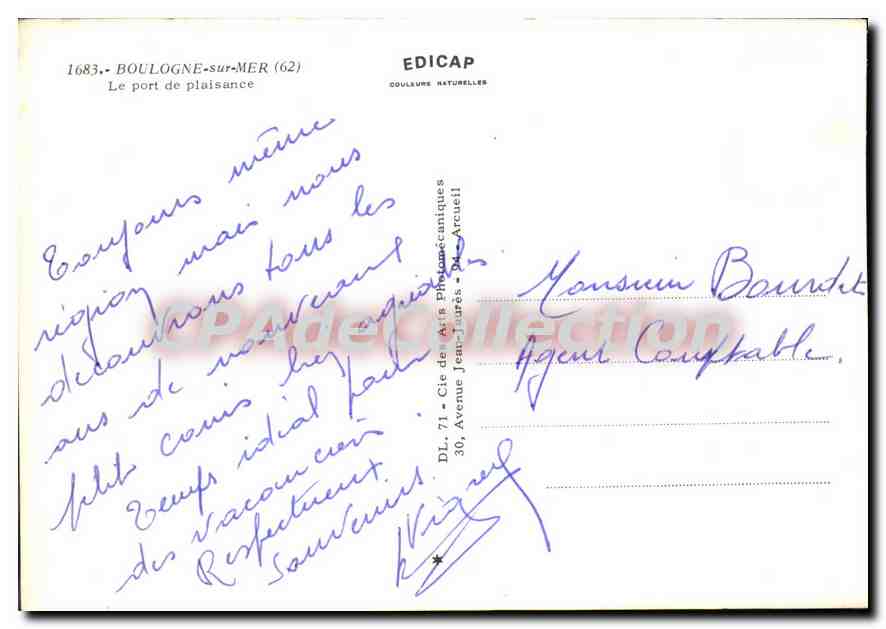 1683.- BOULOGNE-sur-MER (62)
Le port de plaisance
EDICAP
COULEURS NATURELLES
Toujours même
région mais nous
découvrons tous les
ans de nouveaux
ptits coins bien agréables.
Temps idéal pour
des vacanciers.
Respectueux
Souvenirs.
DL. 71 - Cie des Arts Photomécaniques
30, Avenue Jean-Jaurès - 94 - Arcueil
Monsieur Bourdet
Agent Comptable.
CPAdeCollection